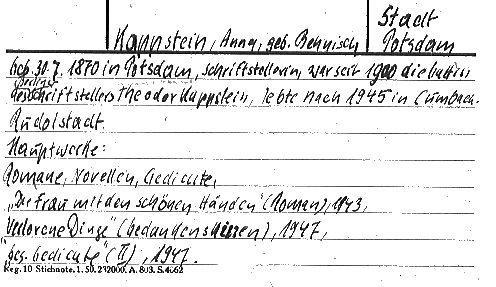 Stadt
Kappstein, Anna, geb. Behnisch
Potsdam
Geb. 30.7. 1870 in Potsdam, Schriftstellerin, war seit 1900 die Gattin
Berliner
des Schriftstellers Theodor Kappstein, lebte nach 1945 in Cumbach-
Rudolstadt.
Hauptwerke:
Romane, Novellen, Gedichte,
„Die Frau mit den schönen Händen" (Roman), 1943,
Verlorene Dinge" (Gedankenskizzen), 1947,
"ges. Gedichte" (II), 1947.
Reg. 10 Stichnote. 1. 50. 232000. A. 803. S. 4662